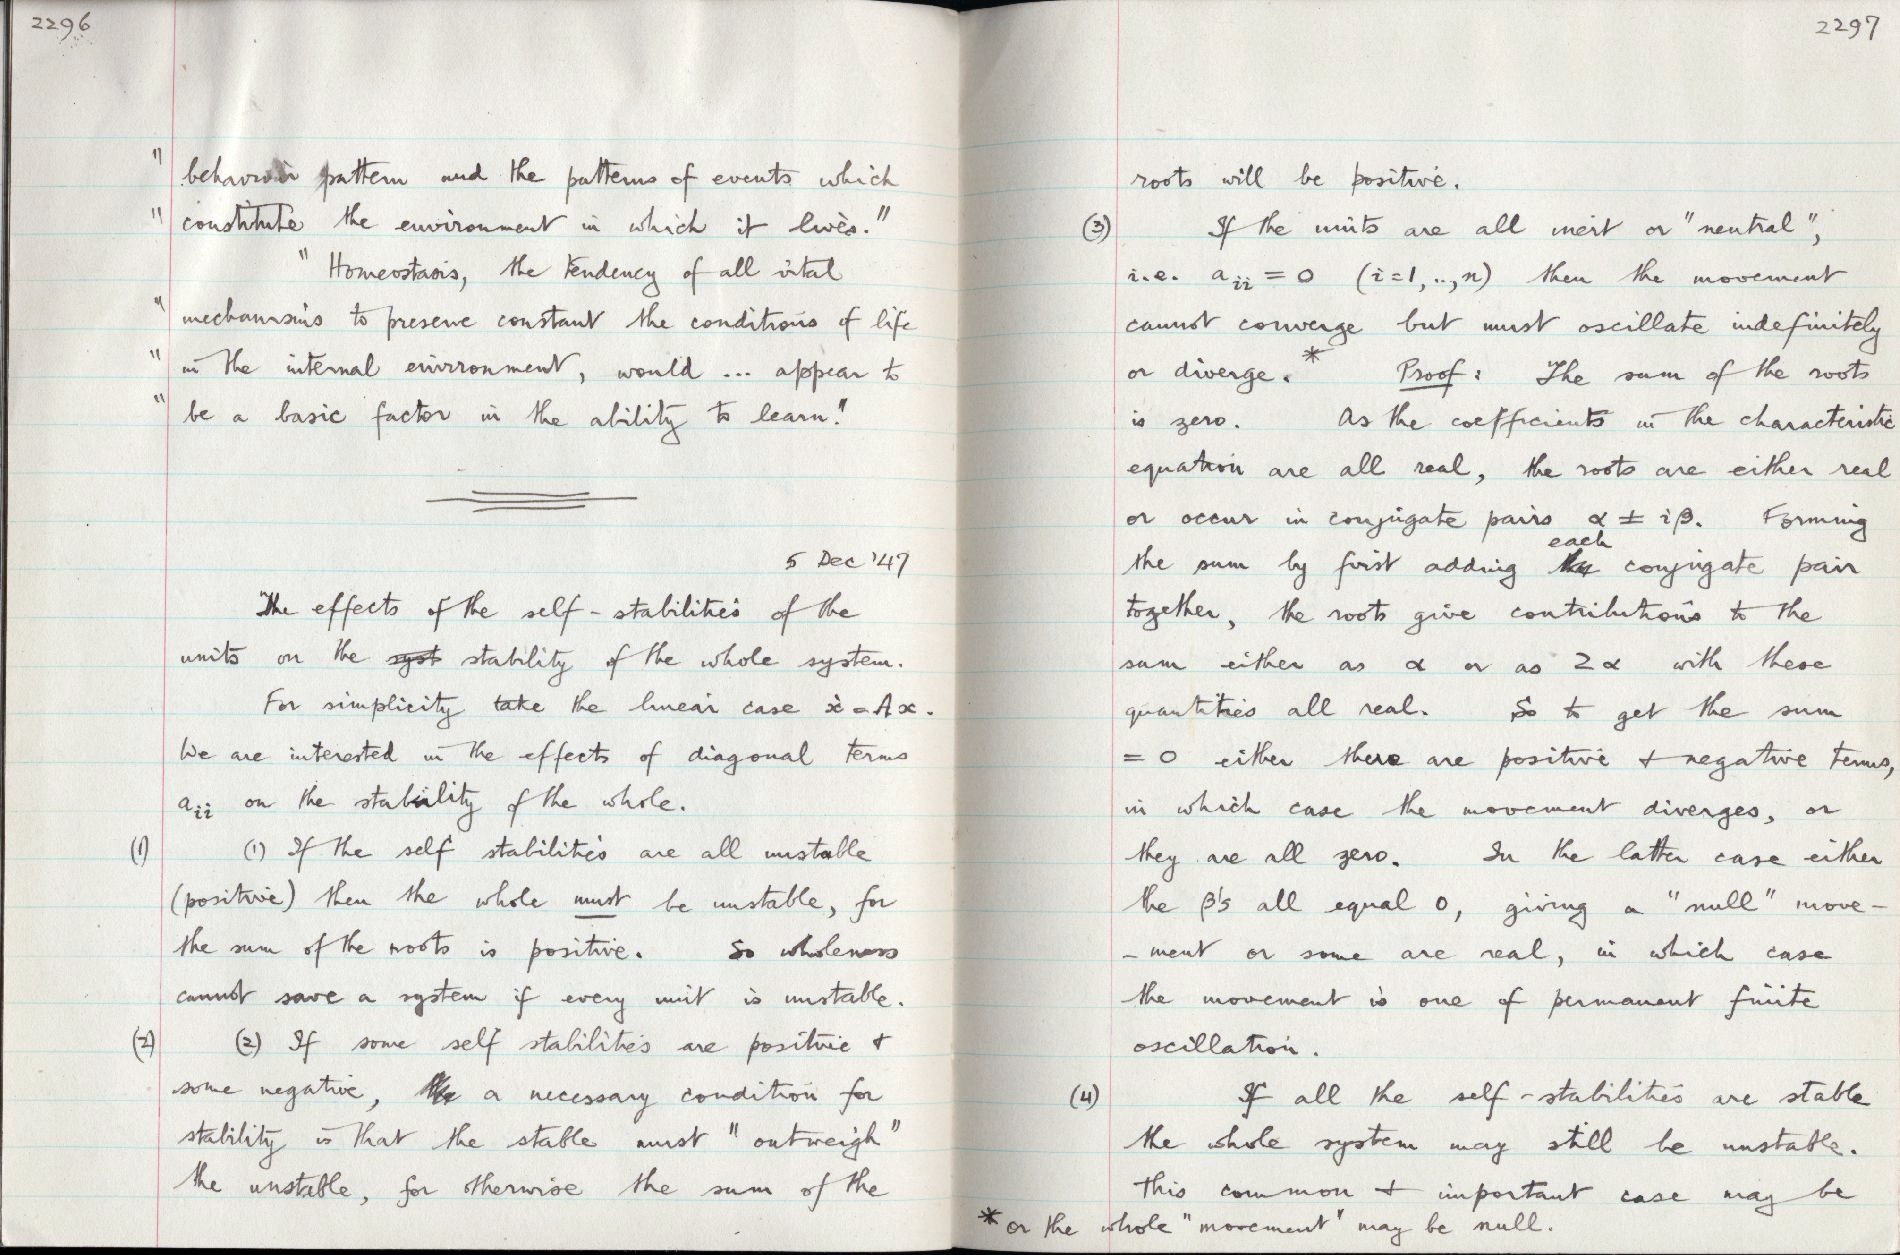 2296
" behavior pattern and the patterns of events which
" constitute the environment in which it lives."
" Homeostasis, the tendency of all vital
" mechanisms to preserve constant the conditions of life
" in the internal environment, would ... appear to
" be a basic factor in the ability to learn."
5 Dec '47
The effects of the self-stabilities of the
units on the syst stability of the whole system.
For simplicity take the linear case ẋ = Ax.
We are interested in the effects of diagonal terms
aii on the stability of the whole.
(1) (1) If the self stabilities are all unstable
(positive) then the whole must be unstable, for
the sum of the roots is positive. So wholeness
cannot save a system if every unit is unstable.
(2) (2) If some self stabilities are positive +
some negative, the a necessary condition for
stability is that the stable must "outweigh"
the unstable, for otherwise the sum of the
2297
roots will be positive.
(3) If the units are all inert or "neutral",
i.e. aii = 0 (i=1,..,n) then the movement
cannot converge but must oscillate indefinitely
or diverge.* Proof: The sum of the roots
is zero. As the coefficients in the characteristic
equation are all real, the roots are either real
or occur in conjugate pairs α ± iβ. Forming
each
the sum by first adding the conjugate pair
together, the roots give contributions to the
sum either as α or as 2α with these
quantities all real. So to get the sum
= 0 either there are positive + negative terms,
in which case the movement diverges, or
they are all zero. In the latter case either
the β's all equal 0, giving a "null" move-
-ment or some are real, in which case
the movement is one of permanent finite
oscillation.
(4) If all the self-stabilities are stable
the whole system may still be unstable.
This common + important case may be
* or the whole "movement" may be null.